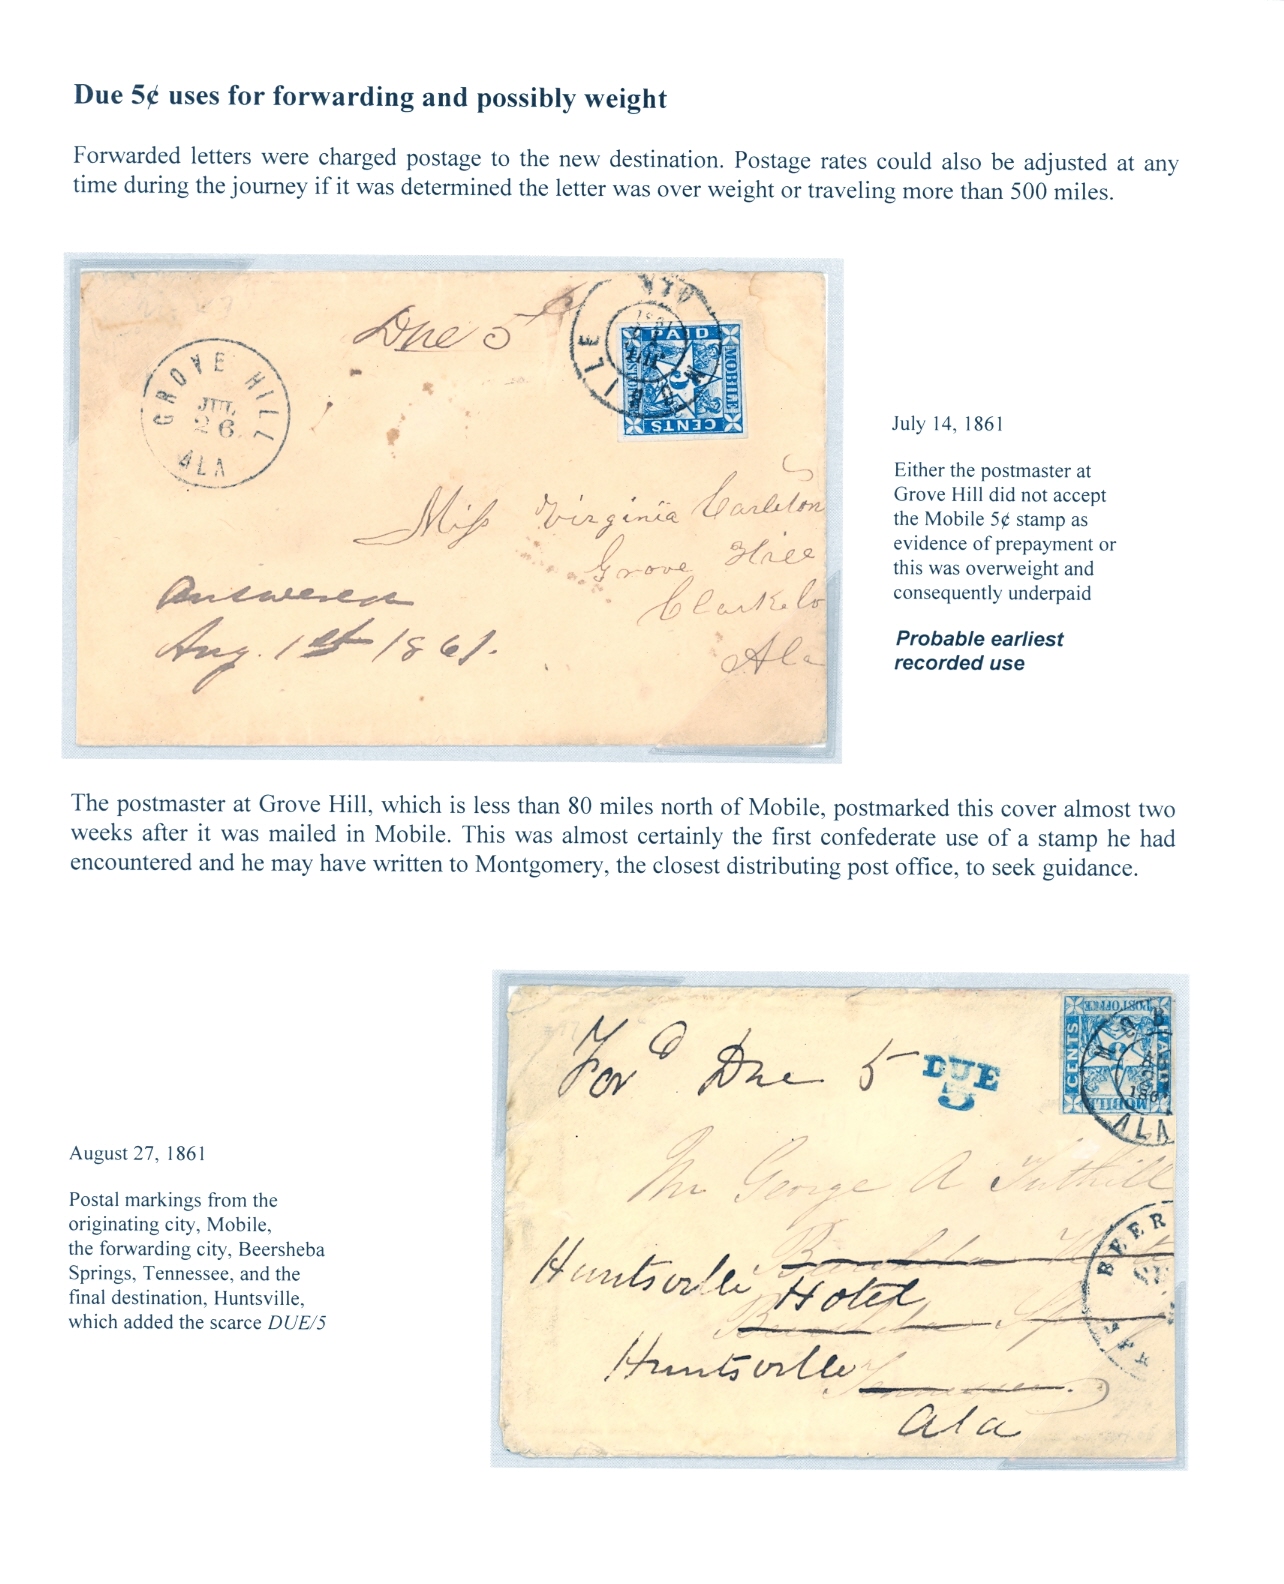 Due 5¢ uses for forwarding and possibly weight
Forwarded letters were charged postage to the new destination. Postage rates could also be adjusted at any
time during the journey if it was determined the letter was over weight or traveling more than 500 miles.
Due 5¢
GROVE HILL
JUL
26
ALA
MOBILE
ALA
1861
PAID
MOBILE
5
CENTS
Miss Virginia Carleton
Grove Hill
Clarke Co
Ala
Answered
Aug. 1st 1861.
July 14, 1861
Either the postmaster at
Grove Hill did not accept
the Mobile 5¢ stamp as
evidence of prepayment or
this was overweight and
consequently underpaid
Probable earliest
recorded use
The postmaster at Grove Hill, which is less than 80 miles north of Mobile, postmarked this cover almost two
weeks after it was mailed in Mobile. This was almost certainly the first confederate use of a stamp he had
encountered and he may have written to Montgomery, the closest distributing post office, to seek guidance.
For'd Due 5
DUE
5
POST OFFICE
CENTS
5
PAID
MOBILE
MOB
ALA
Mr George A Tuthill
Beersheba
Huntsville Hotel
Beersheba Springs
Huntsville
Tennessee
Ala
BEER
SPR
August 27, 1861
Postal markings from the
originating city, Mobile,
the forwarding city, Beersheba
Springs, Tennessee, and the
final destination, Huntsville,
which added the scarce DUE/5